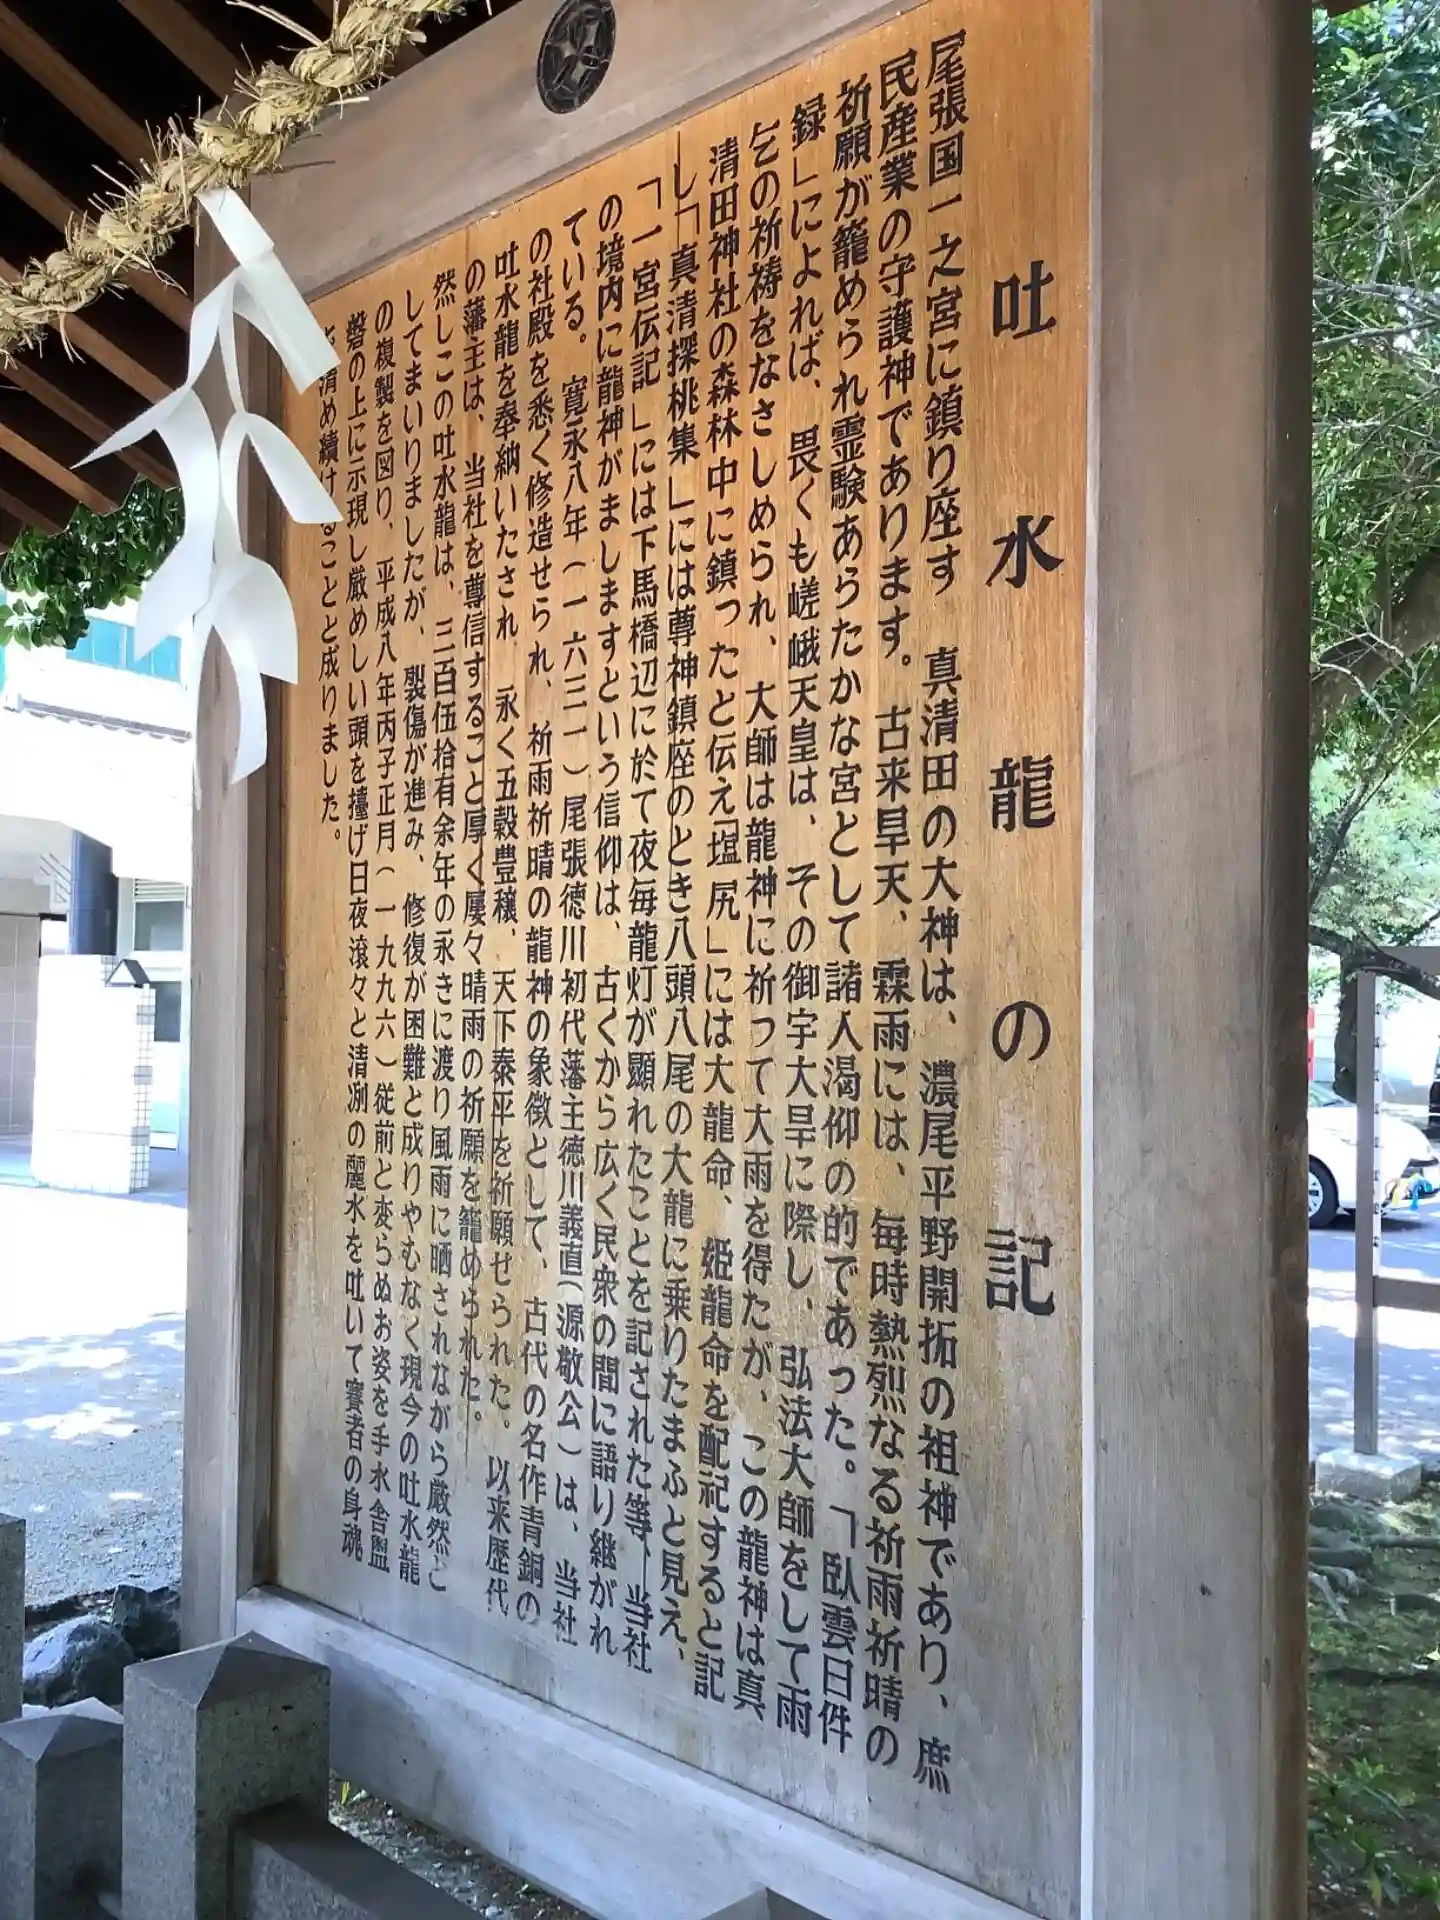 吐水龍の記
尾張国一之宮に鎮り座す　真清田の大神は、濃尾平野開拓の祖神であり、庶
民産業の守護神であります。古来旱天、霖雨には、毎時熱烈なる祈雨祈晴の
祈願が籠められ霊験あらたかな宮として諸人渇仰の的であった。「臥雲日件
録」によれば、畏くも嵯峨天皇は、その御宇大旱に際し、弘法大師をして雨
乞の祈祷をなさしめられ、大師は龍神に祈って大雨を得たが、この龍神は真
清田神社の森林中に鎮ったと伝え「塩尻」には大龍命、姫龍命を配祀すると記
し「真清探桃集」には尊神鎮座のとき八頭八尾の大龍に乗りたまふと見え、
「一宮伝記」には下馬橋辺に於て夜毎龍灯が顕れたことを記された等、当社
の境内に龍神がましますという信仰は、古くから広く民衆の間に語り継がれ
ている。寛永八年（一六三一）尾張徳川初代藩主徳川義直（源敬公）は、当社
の社殿を悉く修造せられ、祈雨祈晴の龍神の象徴として、古代の名作青銅の
吐水龍を奉納いたされ、永く五穀豊穣、天下泰平を祈願せられた。以来歴代
の藩主は、当社を尊信すること厚く屡々晴雨の祈願を籠められた。
然しこの吐水龍は、三百伍拾有余年の永きに渡り風雨に晒されながら厳然と
してまいりましたが、裂傷が進み、修復が困難と成りやむなく現今の吐水龍
の複製を図り、平成八年丙子正月（一九九六）従前と変らぬお姿を手水舎盥
磐の上に示現し厳めしい頭を擡げ日夜滾々と清冽の麗水を吐いて賽者の身魂
を清め続けることと成りました。